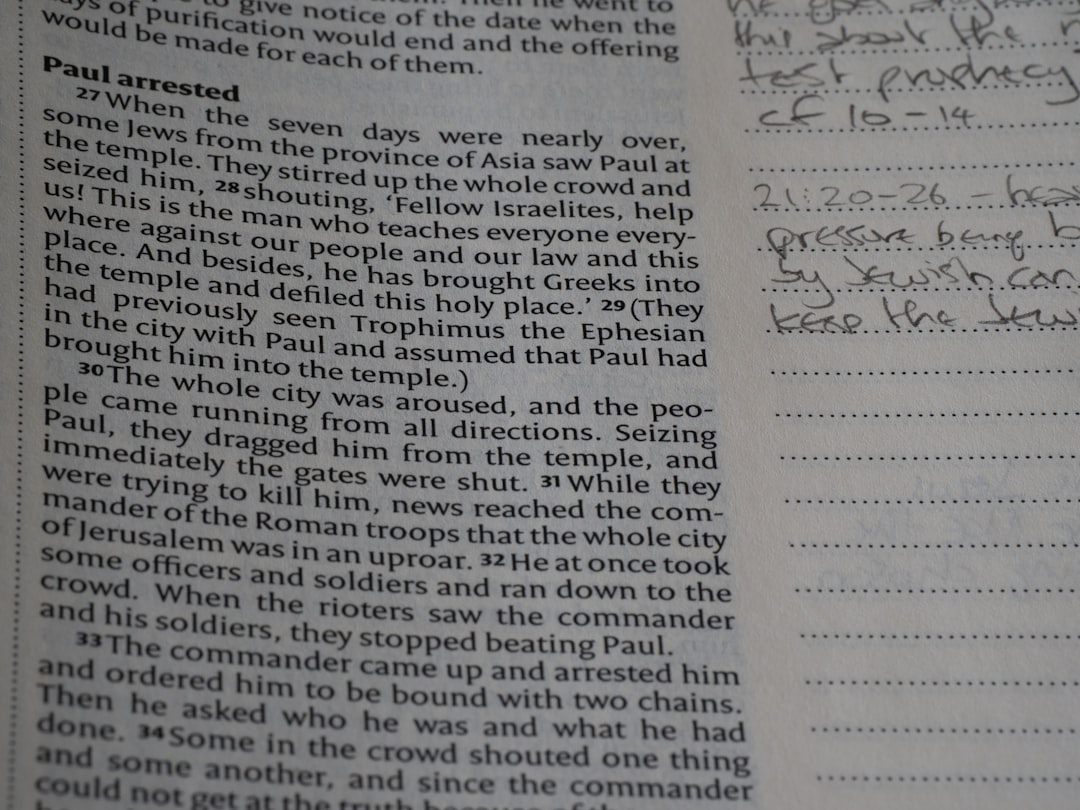 give notice of the date when the
of purification would end and the offering
would be made for each of them.
Paul arrested
27 When the seven days were nearly over,
some Jews from the province of Asia saw Paul at
the temple. They stirred up the whole crowd and
seized him, 28 shouting, ‘Fellow Israelites, help
us! This is the man who teaches everyone every-
where against our people and our law and this
place. And besides, he has brought Greeks into
the temple and defiled this holy place.’ 29 (They
had previously seen Trophimus the Ephesian
in the city with Paul and assumed that Paul had
brought him into the temple.)
30 The whole city was aroused, and the peo-
ple came running from all directions. Seizing
Paul, they dragged him from the temple, and
immediately the gates were shut. 31 While they
were trying to kill him, news reached the com-
mander of the Roman troops that the whole city
of Jerusalem was in an uproar. 32 He at once took
some officers and soldiers and ran down to the
crowd. When the rioters saw the commander
and his soldiers, they stopped beating Paul.
33 The commander came up and arrested him
and ordered him to be bound with two chains.
Then he asked who he was and what he had
done. 34 Some in the crowd shouted one thing
and some another, and since the commander
could not get at the truth because of the
this about the
test prophecy
cf 10-14
21:20-26 - 
pressure being
by Jewish
keep the